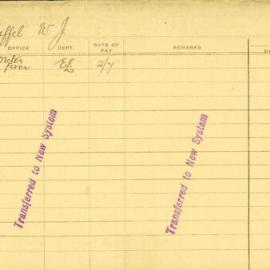 W J.
OFFICE DEPT. RATE OF PAY REMARKS
Meter EL 2/7
Transferred to New System
Transferred to New System